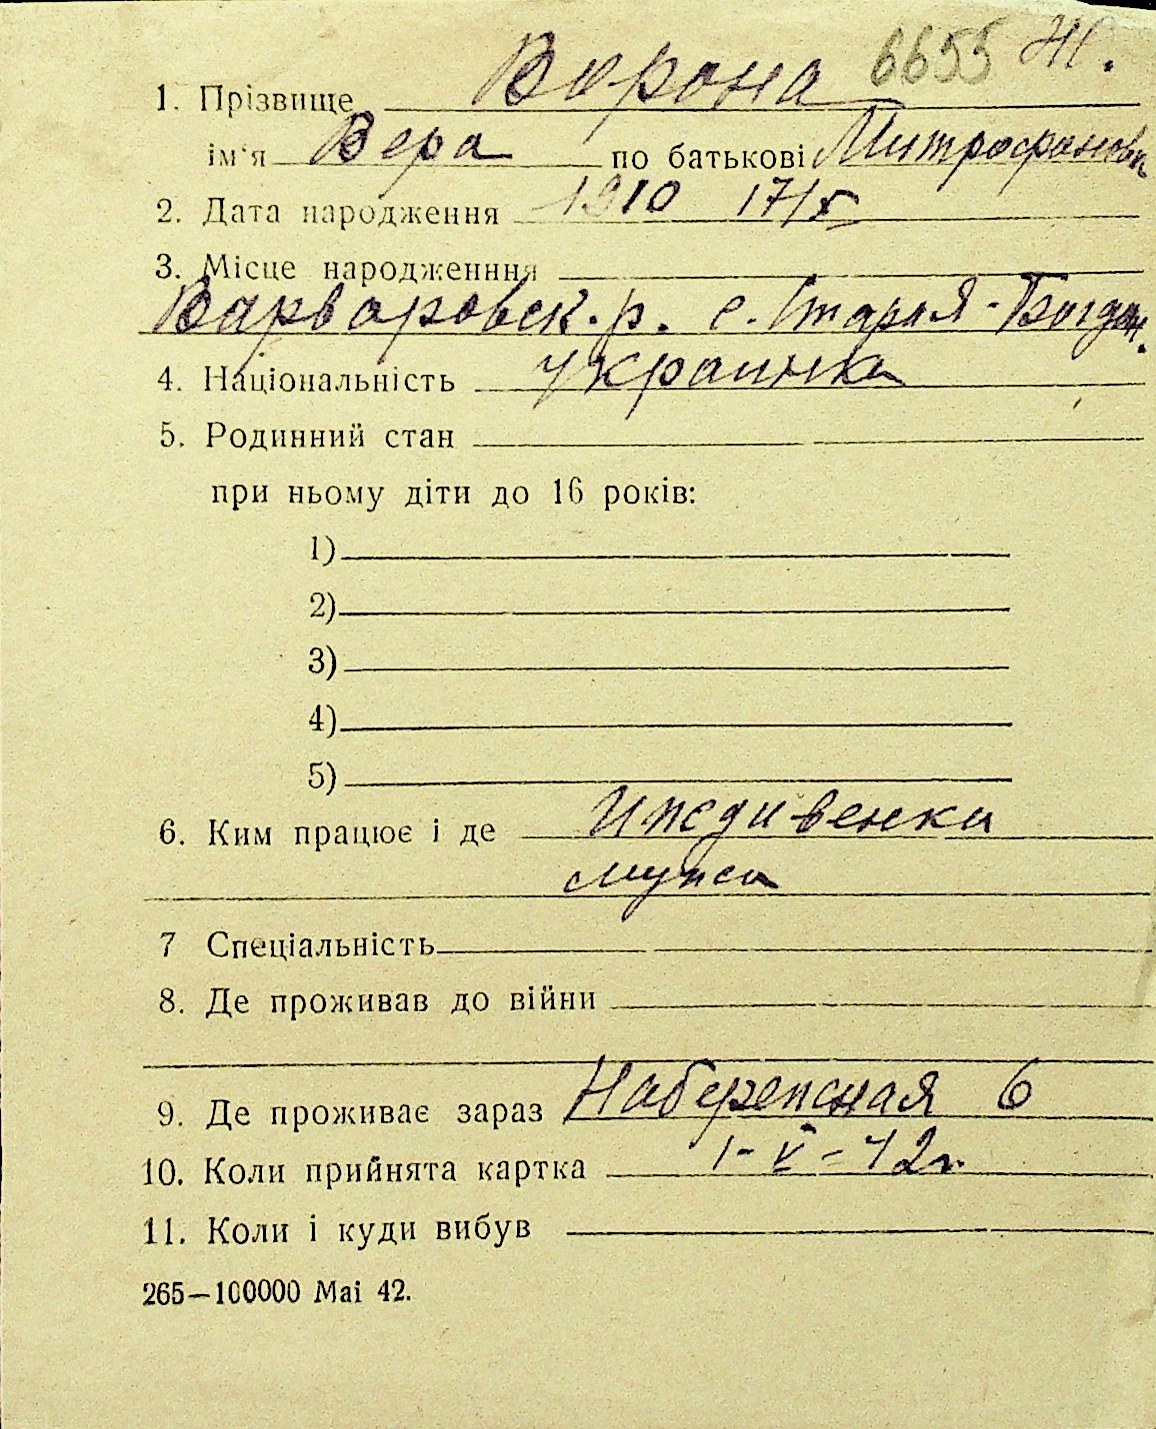 6655 Ж.
1. Прізвище Ворона
ім'я Вера по батькові Митрофановн
2. Дата народження 1910 17/X
3. Місце народженння
Варваровск. р. с. Старая-Богдан.
4. Національність украинка
5. Родинний стан
при ньому діти до 16 років:
1)
2)
3)
4)
5)
6. Ким працює і де Иждивенка
мужа
7 Спеціальність
8. Де проживав до війни
9. Де проживає зараз Набережная 6
10. Коли прийнята картка 1-V-42г.
11. Коли і куди вибув
265—100000 Маі 42.